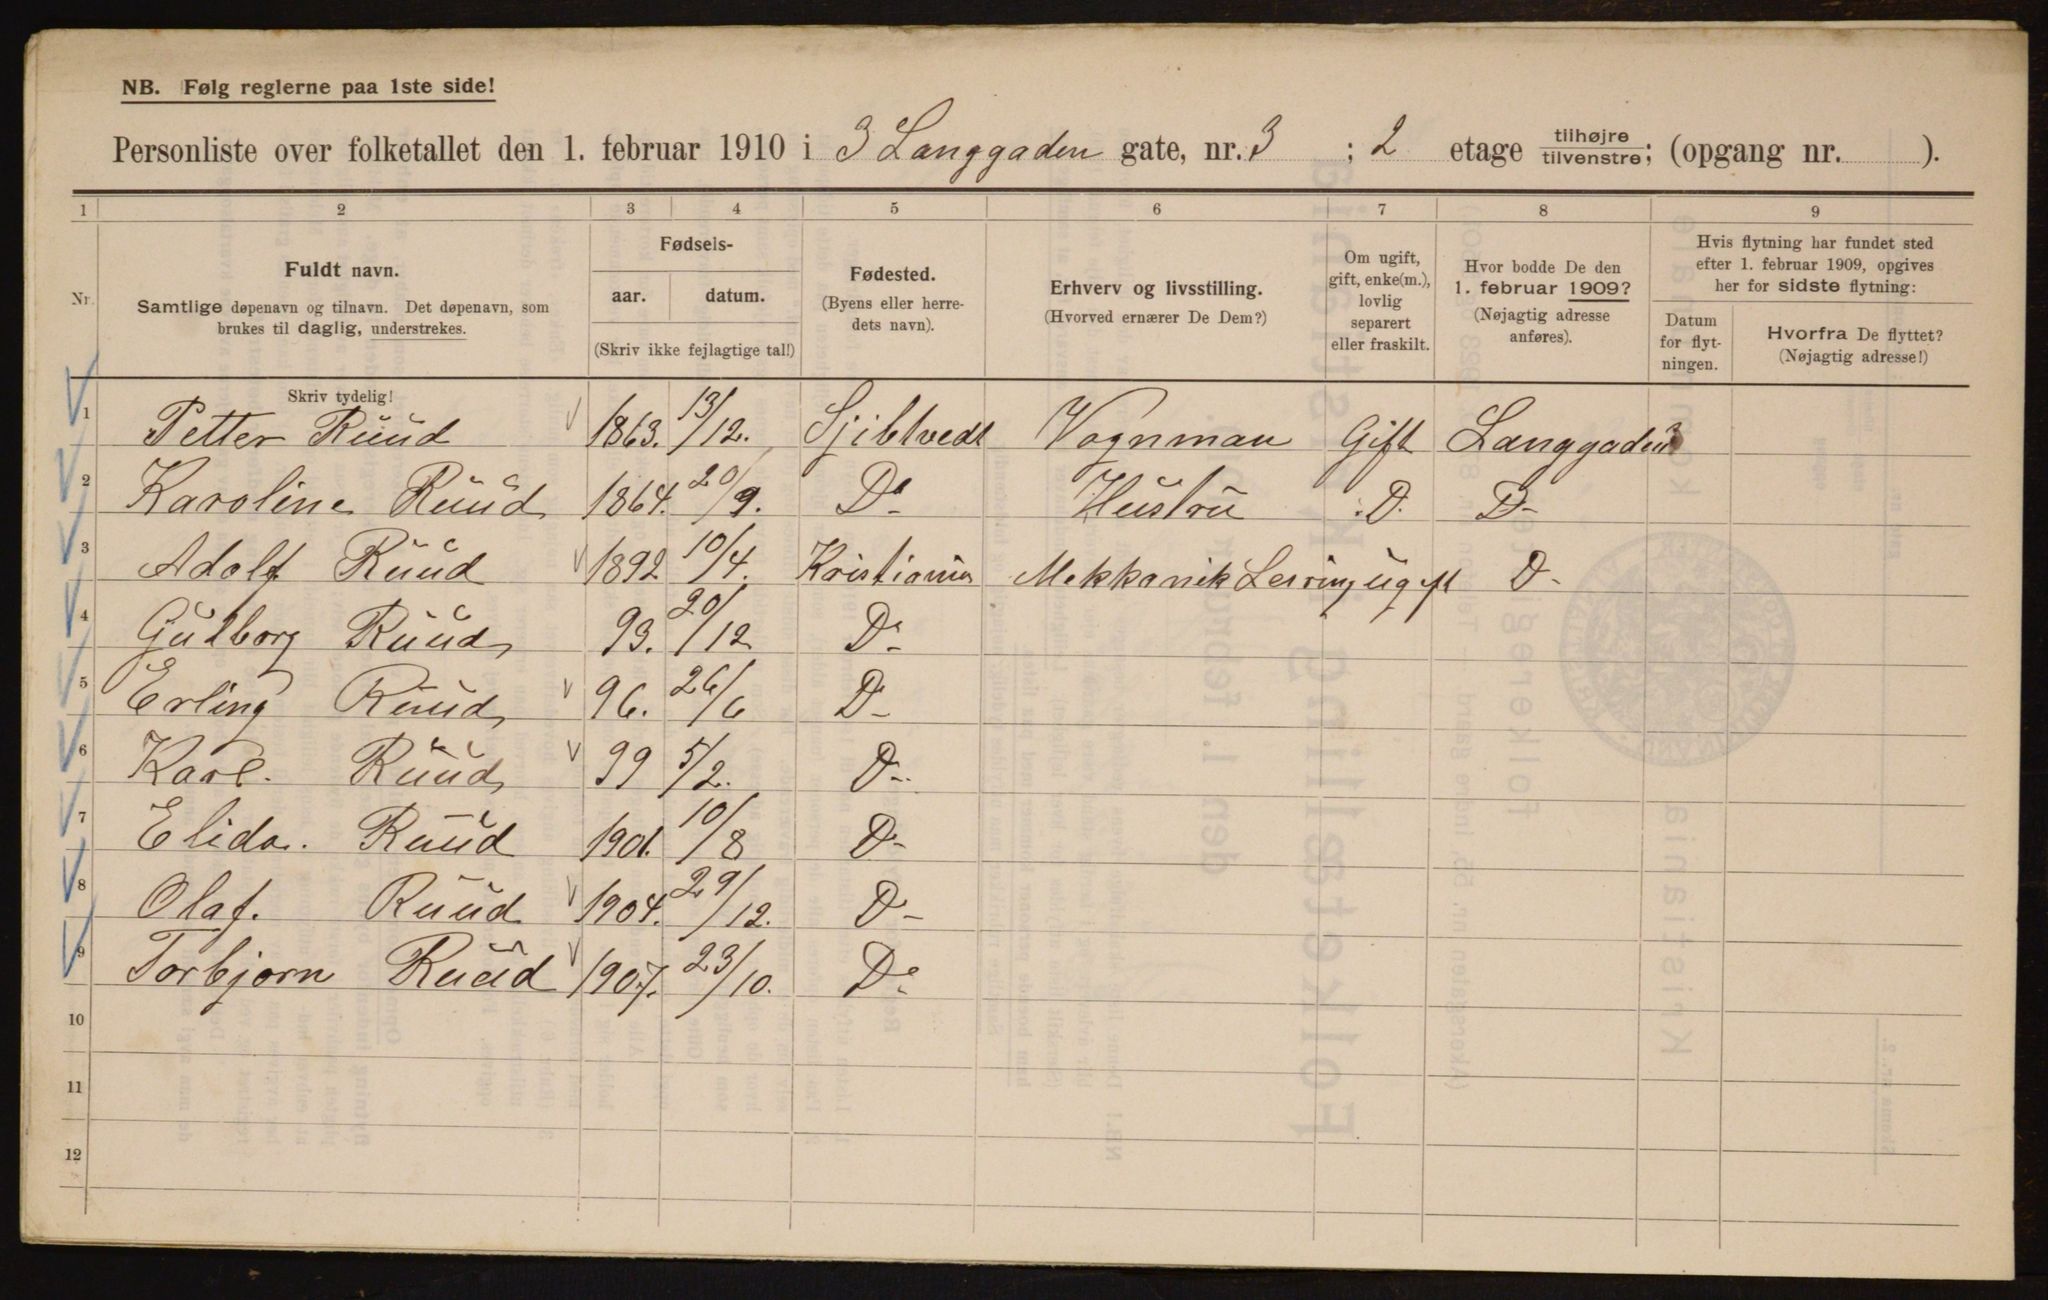 NB. Følg reglerne paa 1ste side!
Personliste over folketallet den 1. februar 1910 i 3 Langgaden gate, nr. 3 ; 2 etage tilhøjre tilvenstre; (opgang nr. ).
1 2 3 4 5 6 7 8 9
Nr.
Fuldt navn.
Samtlige døpenavn og tilnavn. Det døpenavn, som
brukes til daglig, understrekes.
Fødsels-
aar. datum.
(Skriv ikke fejlagtige tal!)
Fødested.
(Byens eller herre-
dets navn).
Erhverv og livsstilling.
(Hvorved ernærer De Dem?)
Om ugift,
gift, enke(m.),
lovlig
separert
eller fraskilt.
Hvor bodde De den
1. februar 1909?
(Nøjagtig adresse
anføres).
Hvis flytning har fundet sted
efter 1. februar 1909, opgives
her for sidste flytning:
Datum
for flyt-
ningen.
Hvorfra De flyttet?
(Nøjagtig adresse!)
Skriv tydelig!
1 Petter Ruud 1863. 13/12. Vognman Gift Langgaden 3
2 Karoline Ruud 1864. 20/9. Do Hustru D. D-
3 Adolf Ruud 1892 10/4. Kristiania Mekkanik ugift D-
4 Gudborg Ruud 93. 20/12 Do-
5 Erling Ruud 96. 26/6 D-
6 Karl. Ruud 99 5/2. D-
7 Elida. Ruud 1901. 10/8 D-
8 Olaf. Ruud 1904. 29/12. D-
9 Torbjørn Ruud 1907. 23/10. Do-
10
11
12